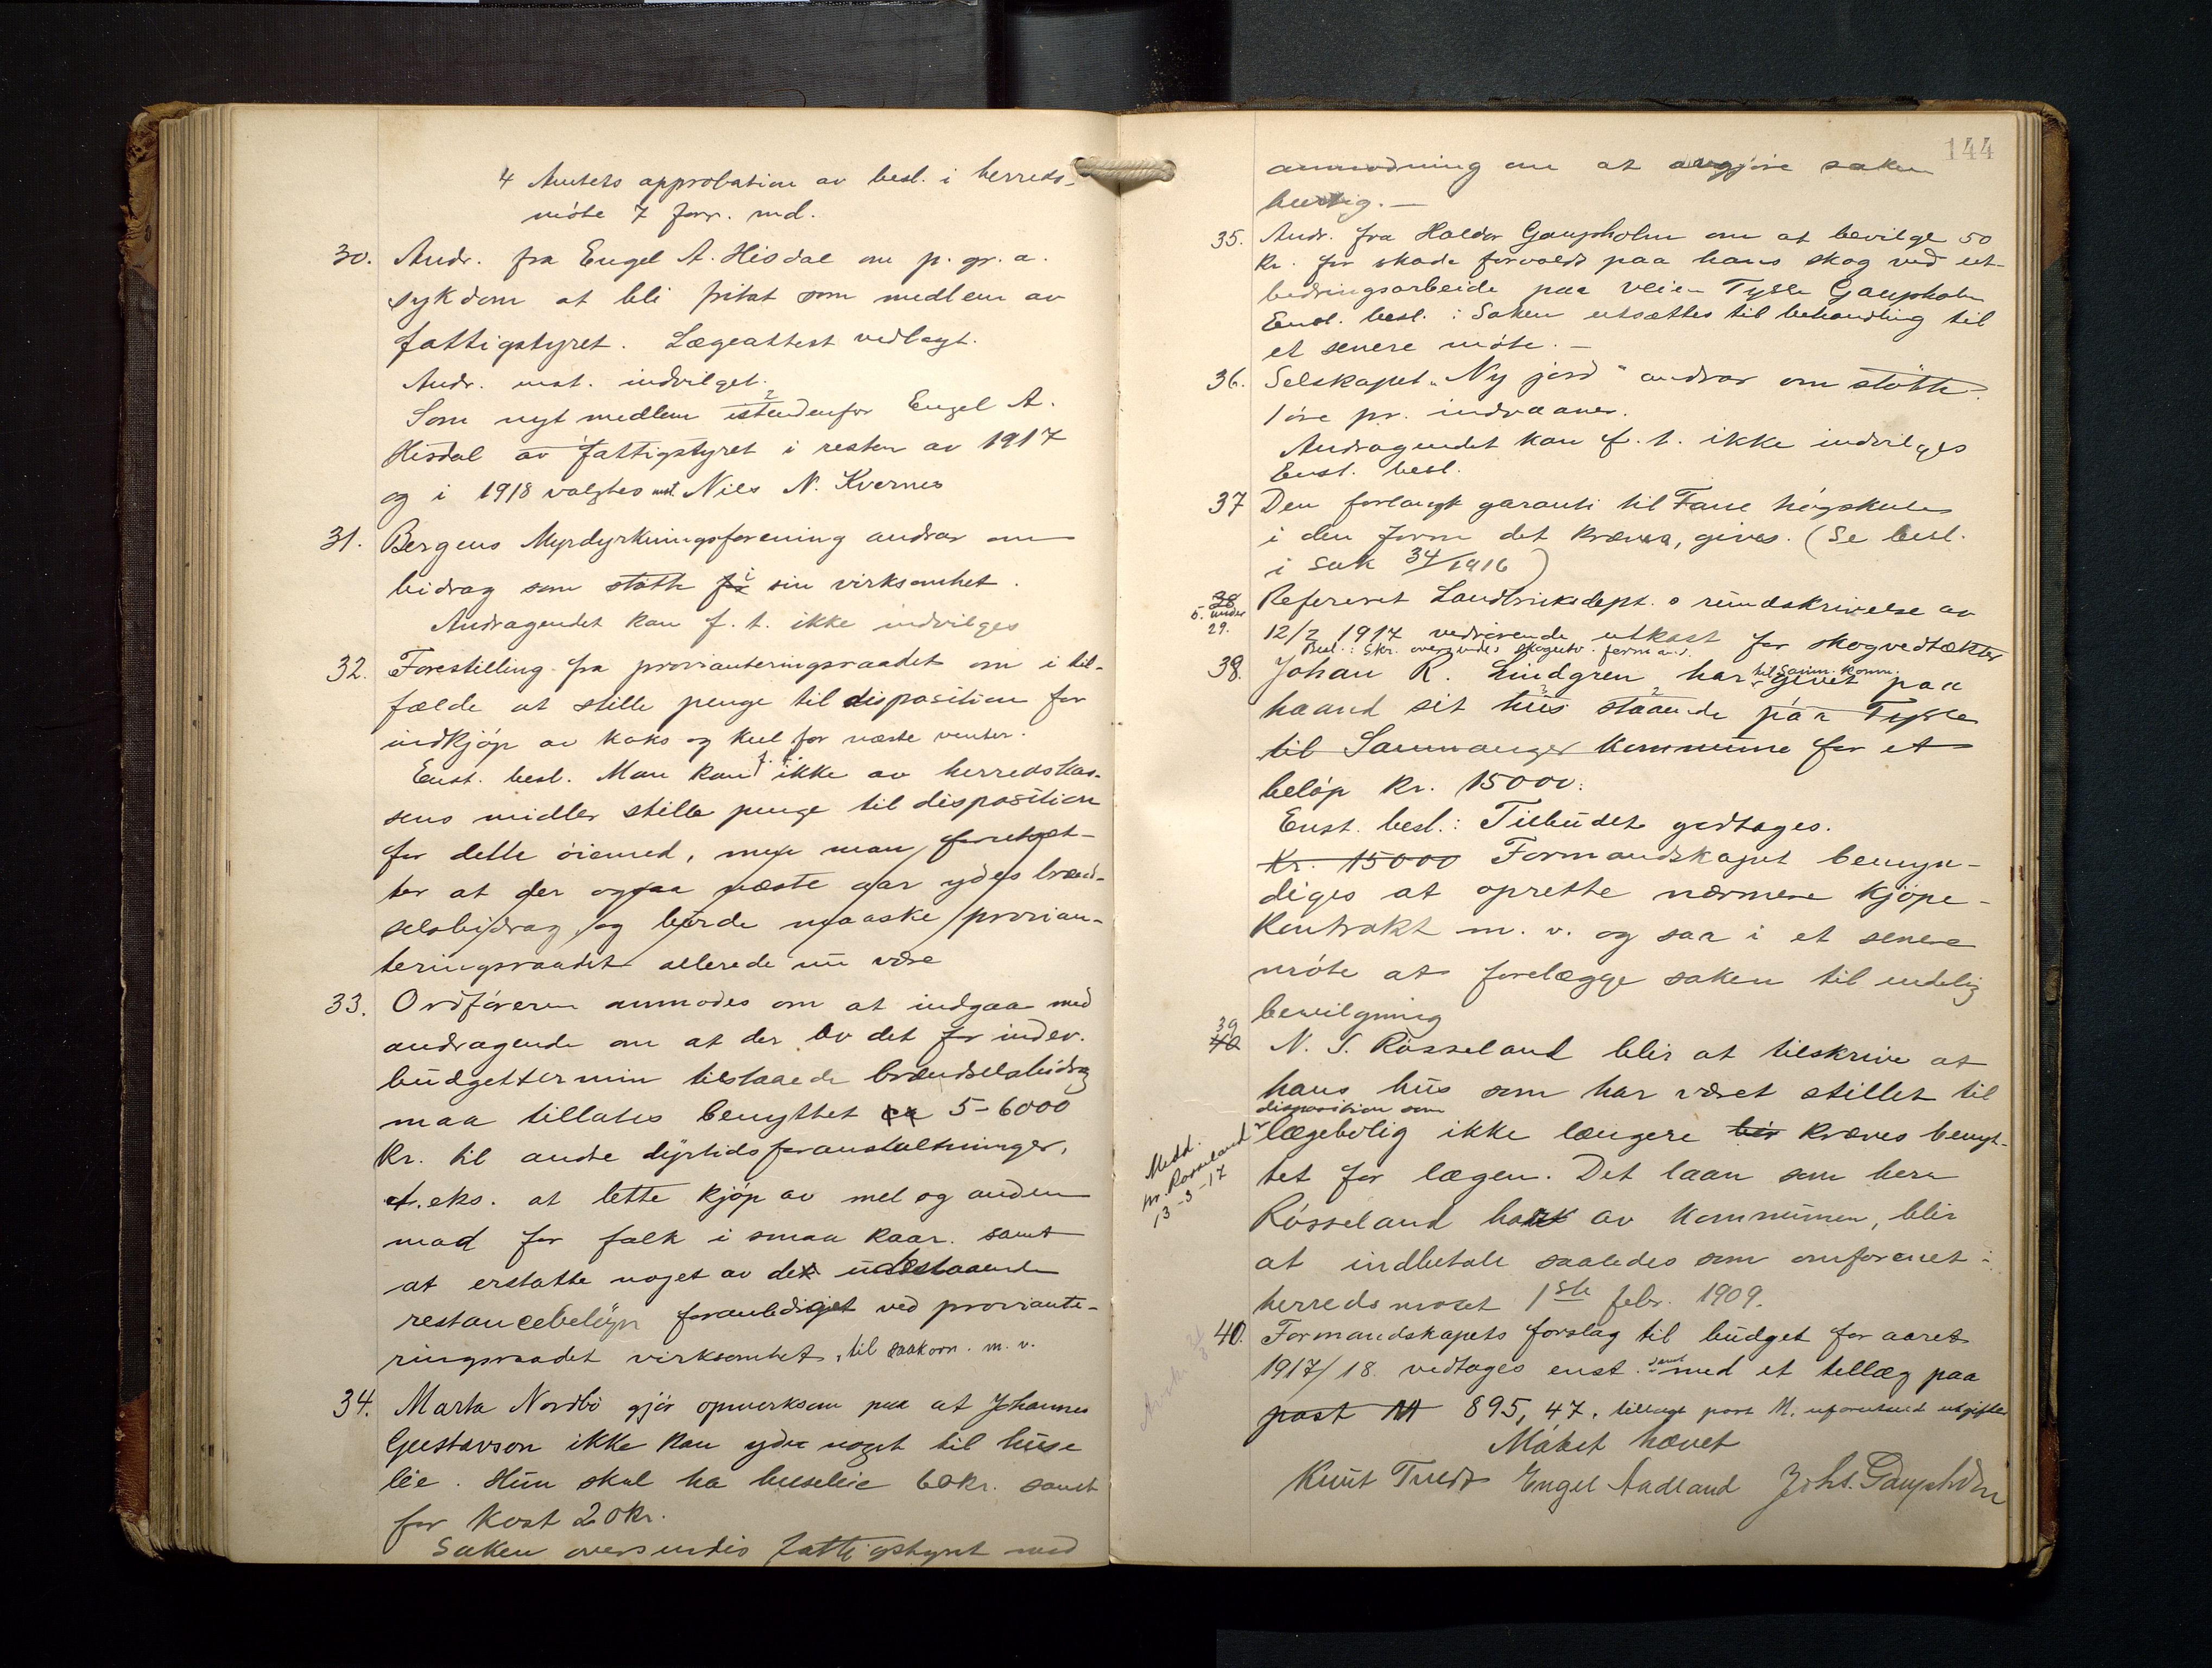 4 Amtets approbation av besl. i herreds-
möte 7 forr. md.
30. Andr. fra Engel A. Hisdal om p. gr. a.
sykdom at bli fritat som medlem av
fattigstyret. Lægeattest vedlagt.
Andr. enst. indvilget.
Som nyt medlem istedenfor Engel A.
Hisdal av fattigstyret i resten av 1917
og i 1918 valgtes enst. Nils N. Kvernes
31. Bergens Myrdyrkningsforening andrar om
bidrag som støtte for i sin virksomhet.
Andragendet kan f. t. ikke indvilges
32. Forestilling fra provianteringsraadet om i til-
fælde at stille penge til disposition for
indkjöp av koks og kul for næste vinter.
Enst. besl. Man kan f. t. ikke av herredskas-
sens midler stille penge til disposition
for dette öiemed, men man forutset-
ter at der ogsaa næste aar ydes brænd-
selsbidrag og burde maaske provian-
teringsraadet allerede nu være
33. Ordföreren anmodes om at indgaa med
andragende om at der av det for indev.
budgettermin tilstaaede brændselsbidrag
maa tillates benyttet ca 5-6000
kr. til andre dyrtidsforanstaltninger,
f. eks. at lette kjöp av mel og anden
mad for folk i smaa kaar. samt
at erstatte noget av det utestaaende
restancebelöp foranlediget ved proviante-
ringsraadet virksomhet, til saakorn. m. v.
34. Marta Nordbö gjör opmerksom paa at Johannes
Gustavson ikke kan yde noget til huse
leie. Hun skal ha huseleie 60 kr. samt
for kost 20 kr.
Saken oversendes fattigstyret med
144
anmodning om at avgjöre saken
hurtig. —
35. Andr. fra Haldor Gaupholm om at bevilge 50
kr. for skade forvoldt paa hans skog ved ut-
bedringsarbeide paa veien Tysse Gaupholm
Enst. besl.: Saken utsættes til behandling til
et senere möte. —
36. Selskapet "Ny jord" andrar om støtte.
1 öre pr. indvaaner.
Andragendet kan f. t. ikke indvilges
Enst. besl.
37 Den forlangt garanti til Fane högskule
i den form det kræves, gives. (Se besl.
i sak 34/1916)
38 Referert Landbruksdept.s rundskrivelse av
b. under
29. 12/2 1917 vedrörende utkast for skogvedtækter
Besl.: Skr. oversendes skogutv. formand.
38. Johan R. Lindgren har til Samn. Komm. givet paa
haand sit hus staaende paa Tysse
til Samnanger kommune for et
belöp kr. 15000.
Enst. besl.: Tilbudet godtages.
Kr. 15000 Formandskapet bemyn-
diges at oprette nærmere kjöpe-
kontrakt m. v. og saa i et senere
möte at forelægge saken til endelig
bevilgning
39
40 N. S. Rösseland blir at tilskrive at
hans hus som har været stillet til
disposition som
lægebolig ikke længere blir kræves benyt-
Medd.
hr. Rösseland
13-3-17
tet for lægen. Det laan som herr
Rösseland har av kommunen, blir
at indbetale saaledes som omforenet i
herredsmötet 1ste febr. 1909.
40. Formandskapets forslag til budget for aaret
1917/18. vedtages enst. samt med et tillæg paa
post M 895,47. tillagt post M. uforutseed utgifter
Mötet hævet
Knut Tveit Engel Aadland Johs. Gaupholm